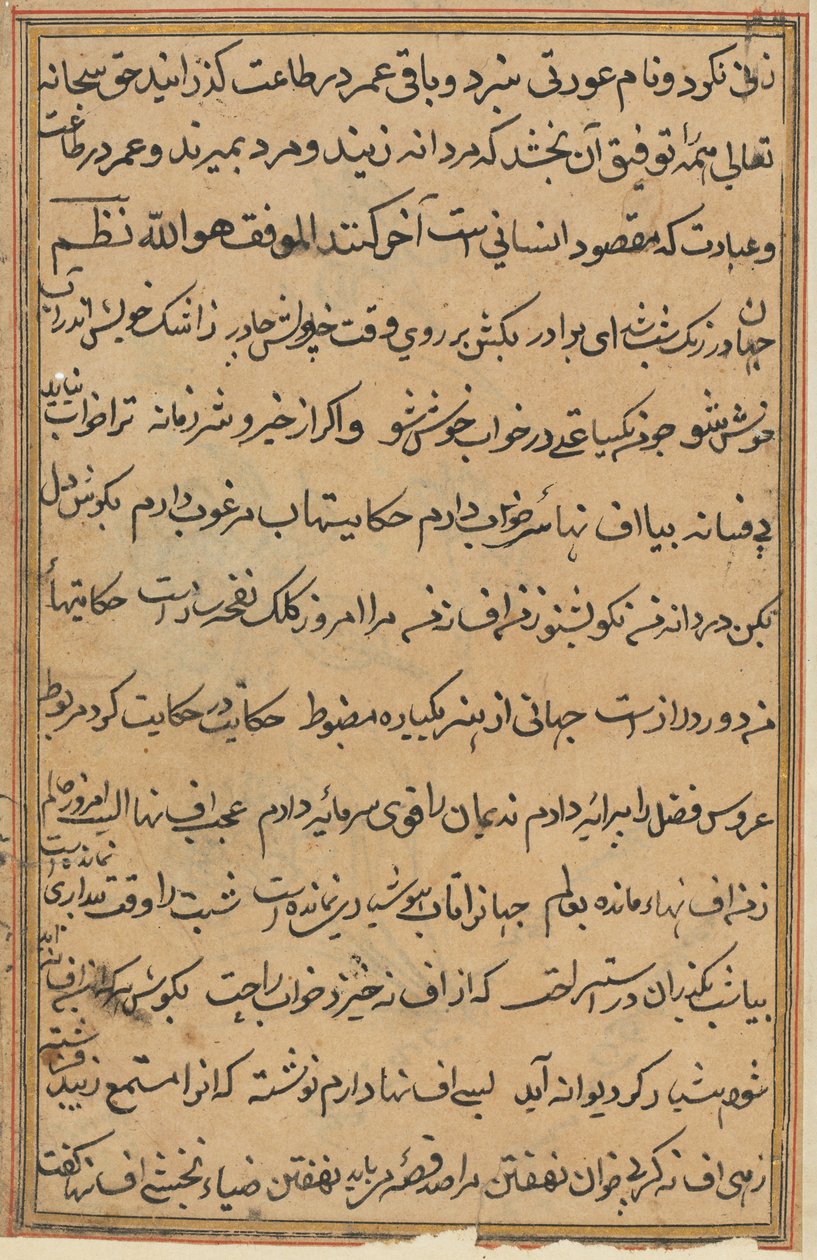 زنی نکرد و نام عورتی نبرد و باقی عمر در طاعت کذرانید حق سبحانه
تعالی همهٔ توفیق آن بخشد که مردانه زیند و مرد بمیرند و عمر در طاعت
و عبادت که مقصود انسانی است آخر کنند الموفق هو الله نظم
جهان در زنک شب شد ای برادر بکش بر روی وقت خویش چادر ز اشک خویش اندر آب
خوش شو جو من یکساعتی در خواب خوش شو و اکر از خیر و شر زمانه ترا خواب نیاید
بی فسانه بیا افسانهاء سر خواب دارم حکایتهاب مرغوب دارم بکوش دل
من نکو بشنو ز من افسانه من مرا امروز کلک نغمه ساز است حکایتهاء
من دور دراز است جهانی از هنر یکباره مضبوط حکایت در حکایت کرده مربوط
عروس فضل را پیرائه دارم ندیمان را قوی سرمائه دارم عجب افسانها الیست امروز عالم
ز من افسانهاء مانده بعالم جهانرا تاب هوشیاری نمانده است شبت را وقت بیداری نمانده است
بیا شب بکذران در استراحت که از افسانه خیزد خواب راحت بکوش هر که از من افسانه آید
شود هشیار کر دیوانه آید بسی افسانها دارم نوشته که انرا مستمع زیبد فرشته
زهی افسانه کز بی خوان نهفتن مرا صد قصه می باید نهفتن ضیاء نخشبی افسانها کفت